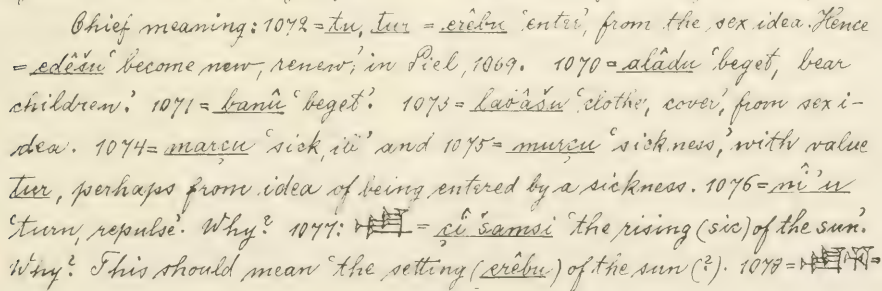 Chief meaning: 1072 = tu, tur = erêbu 'enter', from the sex idea. Hence
= edêšu 'become new, renew', in Piel, 1069. 1070 = alâdu 'beget, bear
children'. 1071 = banû 'beget'. 1073 = labâšu 'clothe, cover', from sex i-
dea. 1074 = marçu 'sick, ill' and 1075 = murçu 'sickness', with value
tur, perhaps from idea of being entered by a sickness. 1076 = nî'u
'turn, repulse'. Why? 1077: = çî šamsi 'the rising (sic) of the sun'.
Why? This should mean 'the setting (erêbu) of the sun (?). 1078 = =